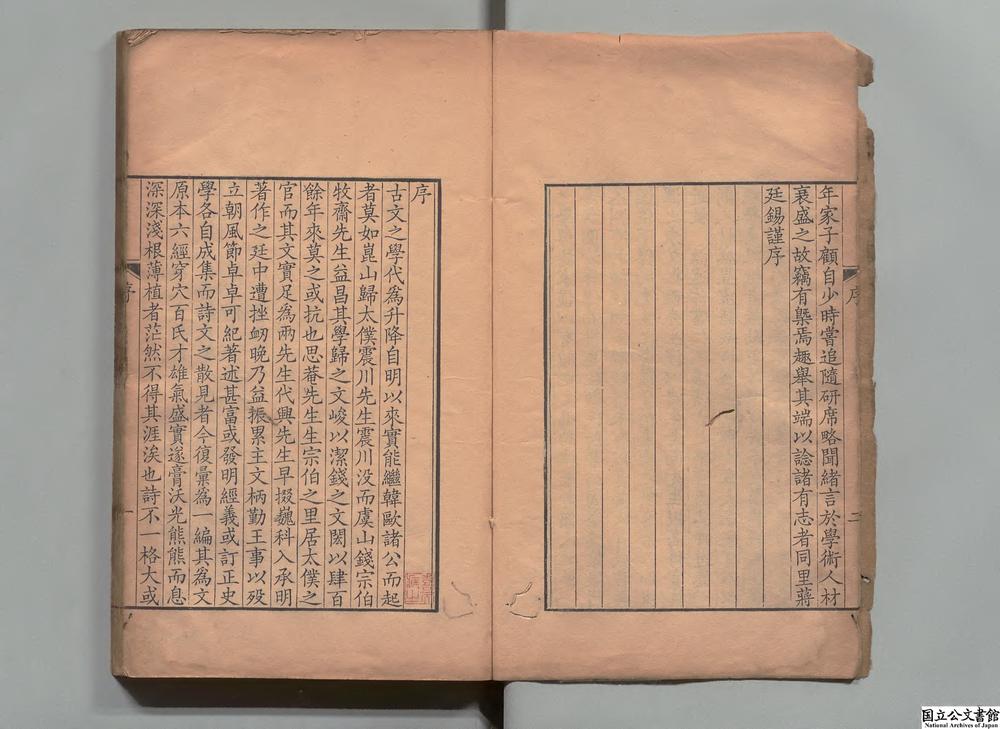 年家子顧自少時嘗追隨硏席略聞緒言於學術人材
衰盛之故竊有槩焉趣舉其端以諗諸有志者同里蔣
廷錫謹序
序
二
序
古文之學代爲升降自明以來實能繼韓歐諸公而起
者莫如崑山歸太僕震川先生震川没而虞山錢宗伯
牧齋先生益昌其學歸之文峻以潔錢之文閎以肆百
餘年來莫之或抗也思菴先生生宗伯之里居太僕之
官而其文實足爲兩先生代興先生早掇巍科入承明
著作之廷中遭挫衂晚乃益振累主文柄勤王事以歿
立朝風節卓卓可紀著述甚富或發明經義或訂正史
學各自成集而詩文之散見者今復彙爲一編其爲文
原本六經穿穴百氏才雄氣盛實遂膏沃光熊熊而息
深深淺根薄植者茫然不得其涯涘也詩不一格大或
序
一
国立公文書館
National Archives of Japan